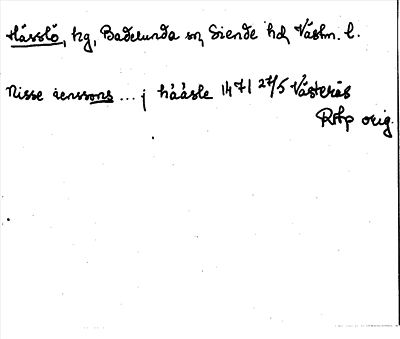 Hässlö, hg, Badelunda sn, Siende hd, Västm. l.
Nisse jenssons ... j hååsle 1471 27/5 Västerås
RAp orig.